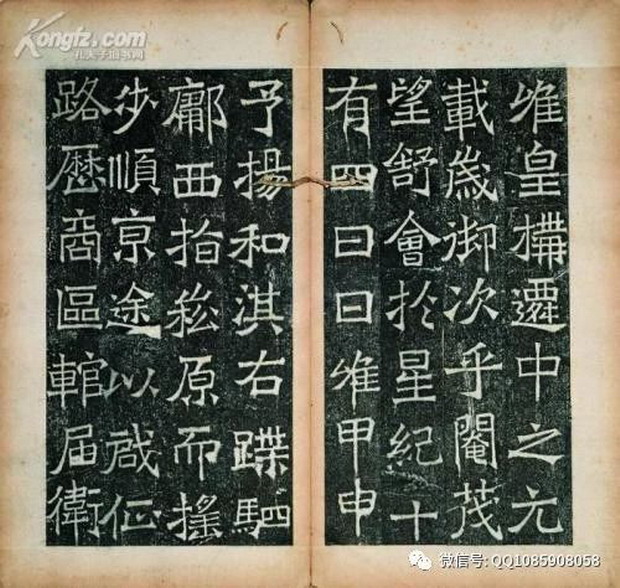 唯皇搆遷中之元
載歲御次乎閹茂
望舒會於星紀十
有四日日唯甲申
予揚和淇右蹀駟
鄘西指崧原而搖
步順京途以啟征
路歷商區輨屆衛
Kongfz.com
孔夫子旧书网
微信号: QQ1085908058